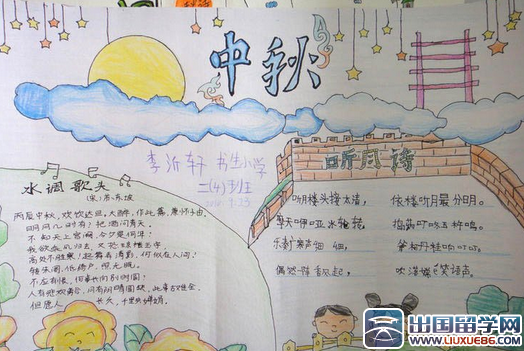 中秋
李沂轩 书生小学
二(4)班
水调歌头
(宋)苏东坡
丙辰中秋，欢饮达旦，大醉，作此篇，兼怀子由。
明月几时有？把酒问青天。
不知天上宫阙，今夕是何年？
我欲乘风归去，又恐琼楼玉宇，
高处不胜寒！起舞弄清影，何似在人间！
转朱阁，低绮户，照无眠。
不应有恨，何事长向别时圆？
人有悲欢离合，月有阴晴圆缺，此事古难全。
但愿人长久，千里共婵娟。
听月诗
听月楼头接太清，
依楼听月最分明。
捣药叮咚玉杵鸣。
偶然一阵香风起，
出国留学网
www.liuxue86.com